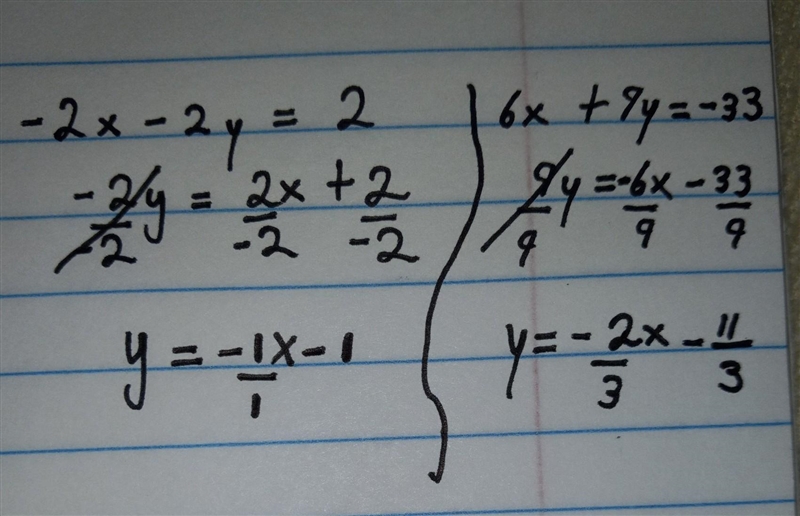 -2x - 2y = 2
-2/-2 y = 2x/-2 + 2/-2
y = -1x/1 - 1
6x + 9y = -33
9/9 y = -6x/9 - 33/9
y = -2x/3 - 11/3